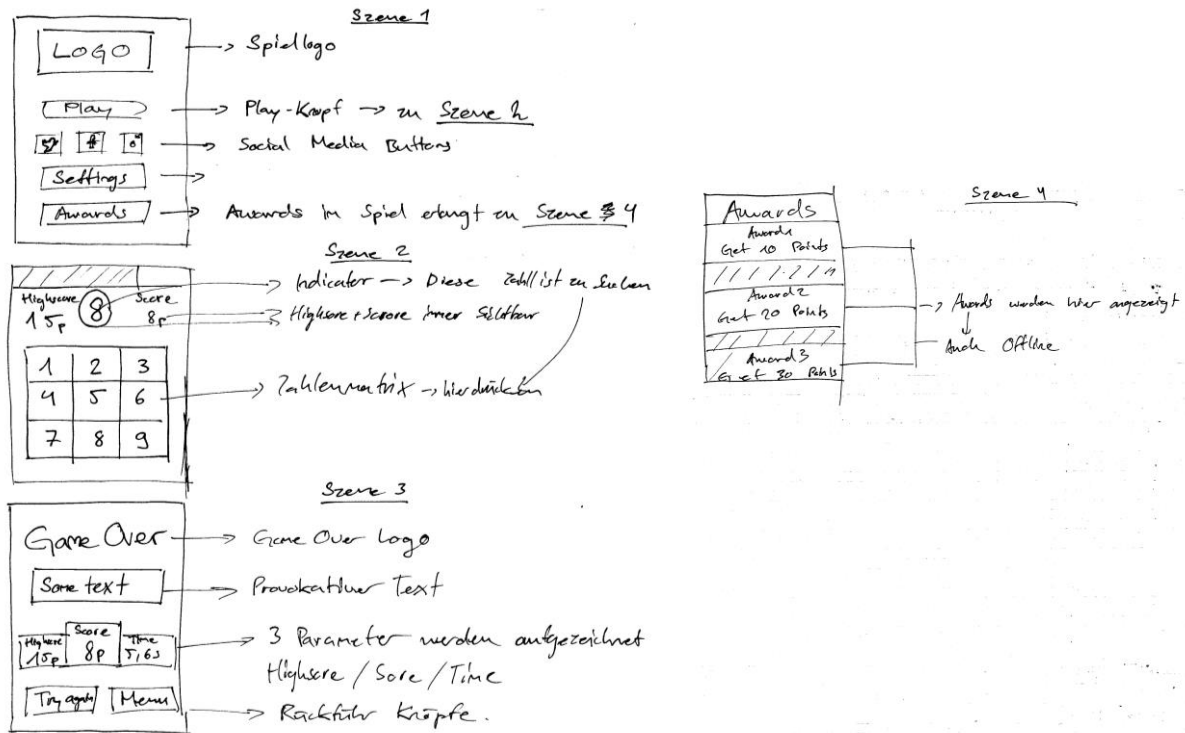 Szene 1
LOGO
Spiellogo
Play
Play-Knopf → zu Szene 2
Social Media Buttons
Settings
Awards
Awards im Spiel erlangt zu Szene 4
Szene 2
Highscore 8 Score
15p 8p
Indicator → Diese Zahl ist zu
Highscore + Score immer
1 2 3
4 5 6
7 8 9
Zahlenmatrix → hier drücken
Szene 3
Game Over
Game Over Logo
Some text
Provokativer Text
Highscore Score Time
15p 8p 5,6s
3 Parameter werden aufgezeichnet
Highscore / Sore / Time
Try again Menu
Rückführ Knöpfe.
Szene 4
Awards
Award1
Get 10 Points
Award2
Get 20 Points
Award3
Get 30 Points
Awards werden hier angezeigt
Auch Offline